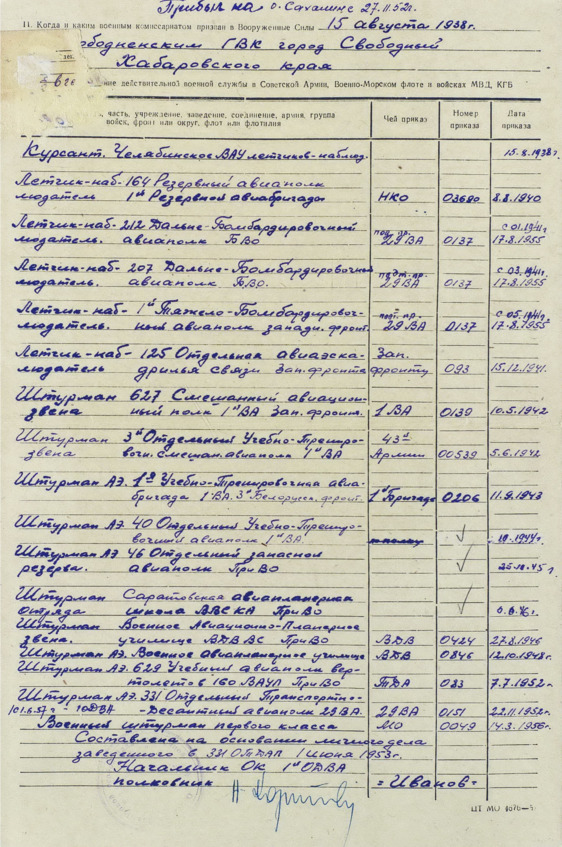 Прибыл на о. Сахалине 27.11.52г.
11. Когда и каким военным комиссариатом призван в Вооруженные Силы 15 августа 1938г.
ободненским ГВК город Свободный
Хабаровского края
ние действительной военной службы в Советской Армии, Военно-Морском флоте и войсках МВД, КГБ
, часть, учреждение, заведение, соединение, армия, группа войск, фронт или округ, флот или флотилия Чей приказ Номер приказа Дата приказа
Курсант. Челябинское ВАУ летчиков-наблюд. 15.8.1938г
Летчик-наб- 164 Резервный авиаполк
людатель 1й Резервной авиабригады НКО 03680 8.8.1940
Летчик-наб- 212 Дальне-Бомбардировочный с 01.1941г
людатель. авиаполк БВО 29 ВА 0137 17.8.1955
Летчик-наб- 207 Дальне-Бомбардировочный с 03.1941г
людатель. авиаполк БВО. 29 ВА 0137 17.8.1955
Летчик-наб- 1й Тяжело-Бомбардировоч- с 05.1941г
людатель. ный авиаполк западн. фронт. 29 ВА 0137 17.8.1955
Летчик-наб- 125 Отдельная авиаэска- Зап.
людатель дрилья связи Зап. фронта фронту 093 15.12.1941.
Штурман 627 Смешанный авиацион-
звена ный полк 1й ВА Зап. фронт. 1 ВА 0139 10.5.1942
Штурман 3й Отдельный Учебно-Трениро- 43й
звена вочн. смешан. авиаполк 1й ВА Армии 00539 5.6.1942
Штурман АЭ. 1я Учебно-Тренировочная авиа-
бригада 1 ВА. 3й Белорусск. фронт. 1й Бригаде 0206 11.9.1943
Штурман АЭ. 40 Отдельный Учебно-Трениро-
вочный авиаполк 1й ВА. 1944г.
Штурман АЭ 46 Отдельный запасной
резерва. авиаполк ПриВО 10.45г
Штурман Саратовская авиапланерная
отряда школа ВВС КА ПриВО
Штурман Военное Авиационно-Планерное
звена. училище ВДВ ВС ПриВО ВДВ 0424 27.8.1946
Штурман АЭ. Военное авиапланерное училище ВДВ 0846 12.10.1948г.
Штурман АЭ. 629 Учебный авиаполк вер-
толетов 160 ВАУЛ ПриВО ТДА 083 7.7.1952г.
Штурман АЭ. 331 Отдельный Транспортно-
-Десантный авиаполк 29 ВА. 29 ВА 0151 22.11.1952г.
Военный штурман первого класса МО 0049 14.3.1956г.
Составлена на основании личного дела
заведенного в 331 ОТДАП 1 июня 1953г.
Начальник ОК 1й ОДВА
полковник = Иванов =